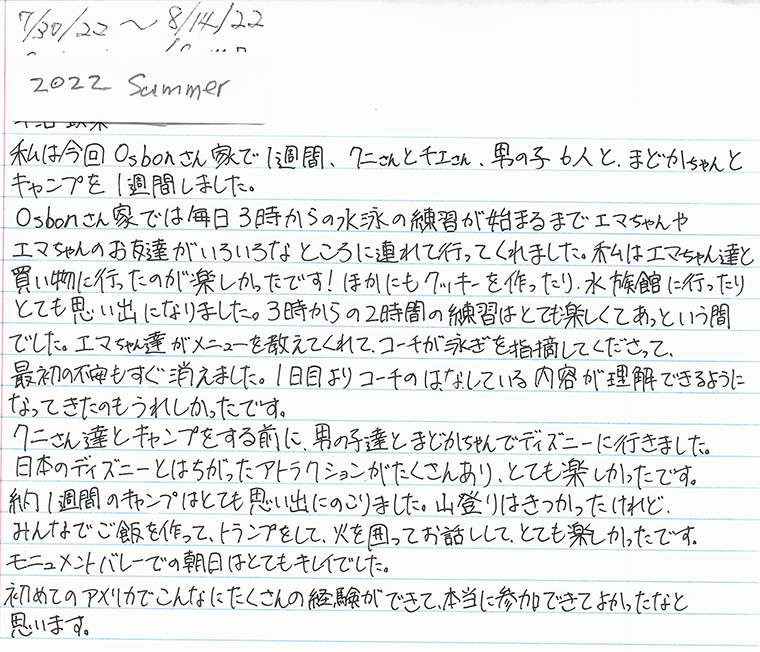 7/30/22 〜 8/14/22
2022 Summer
私は今回Osbonさん家で1週間、クニさんとチエさん、男の子6人と、まどかちゃんと
キャンプを1週間しました。
Osbonさん家では毎日3時からの水泳の練習が始まるまでエマちゃんや
エマちゃんのお友達がいろいろなところに連れて行ってくれました。私はエマちゃん達と
買い物に行ったのが楽しかったです！ほかにもクッキーを作ったり、水族館に行ったり
とても思い出になりました。3時からの2時間の練習はとても楽しくてあっという間
でした。エマちゃん達がメニューを教えてくれて、コーチが泳ぎを指摘してくださって、
最初の不安もすぐ消えました。1日目よりコーチのはなしている内容が理解できるように
なってきたのもうれしかったです。
クニさん達とキャンプをする前に、男の子達とまどかちゃんでディズニーに行きました。
日本のディズニーとはちがったアトラクションがたくさんあり、とても楽しかったです。
約1週間のキャンプはとても思い出にのこりました。山登りはきつかったけれど、
みんなでご飯を作って、トランプをして、火を囲ってお話しして、とても楽しかったです。
モニュメントバレーでの朝日はとてもキレイでした。
初めてのアメリカでこんなにたくさんの経験ができて、本当に参加できてよかったなと
思います。